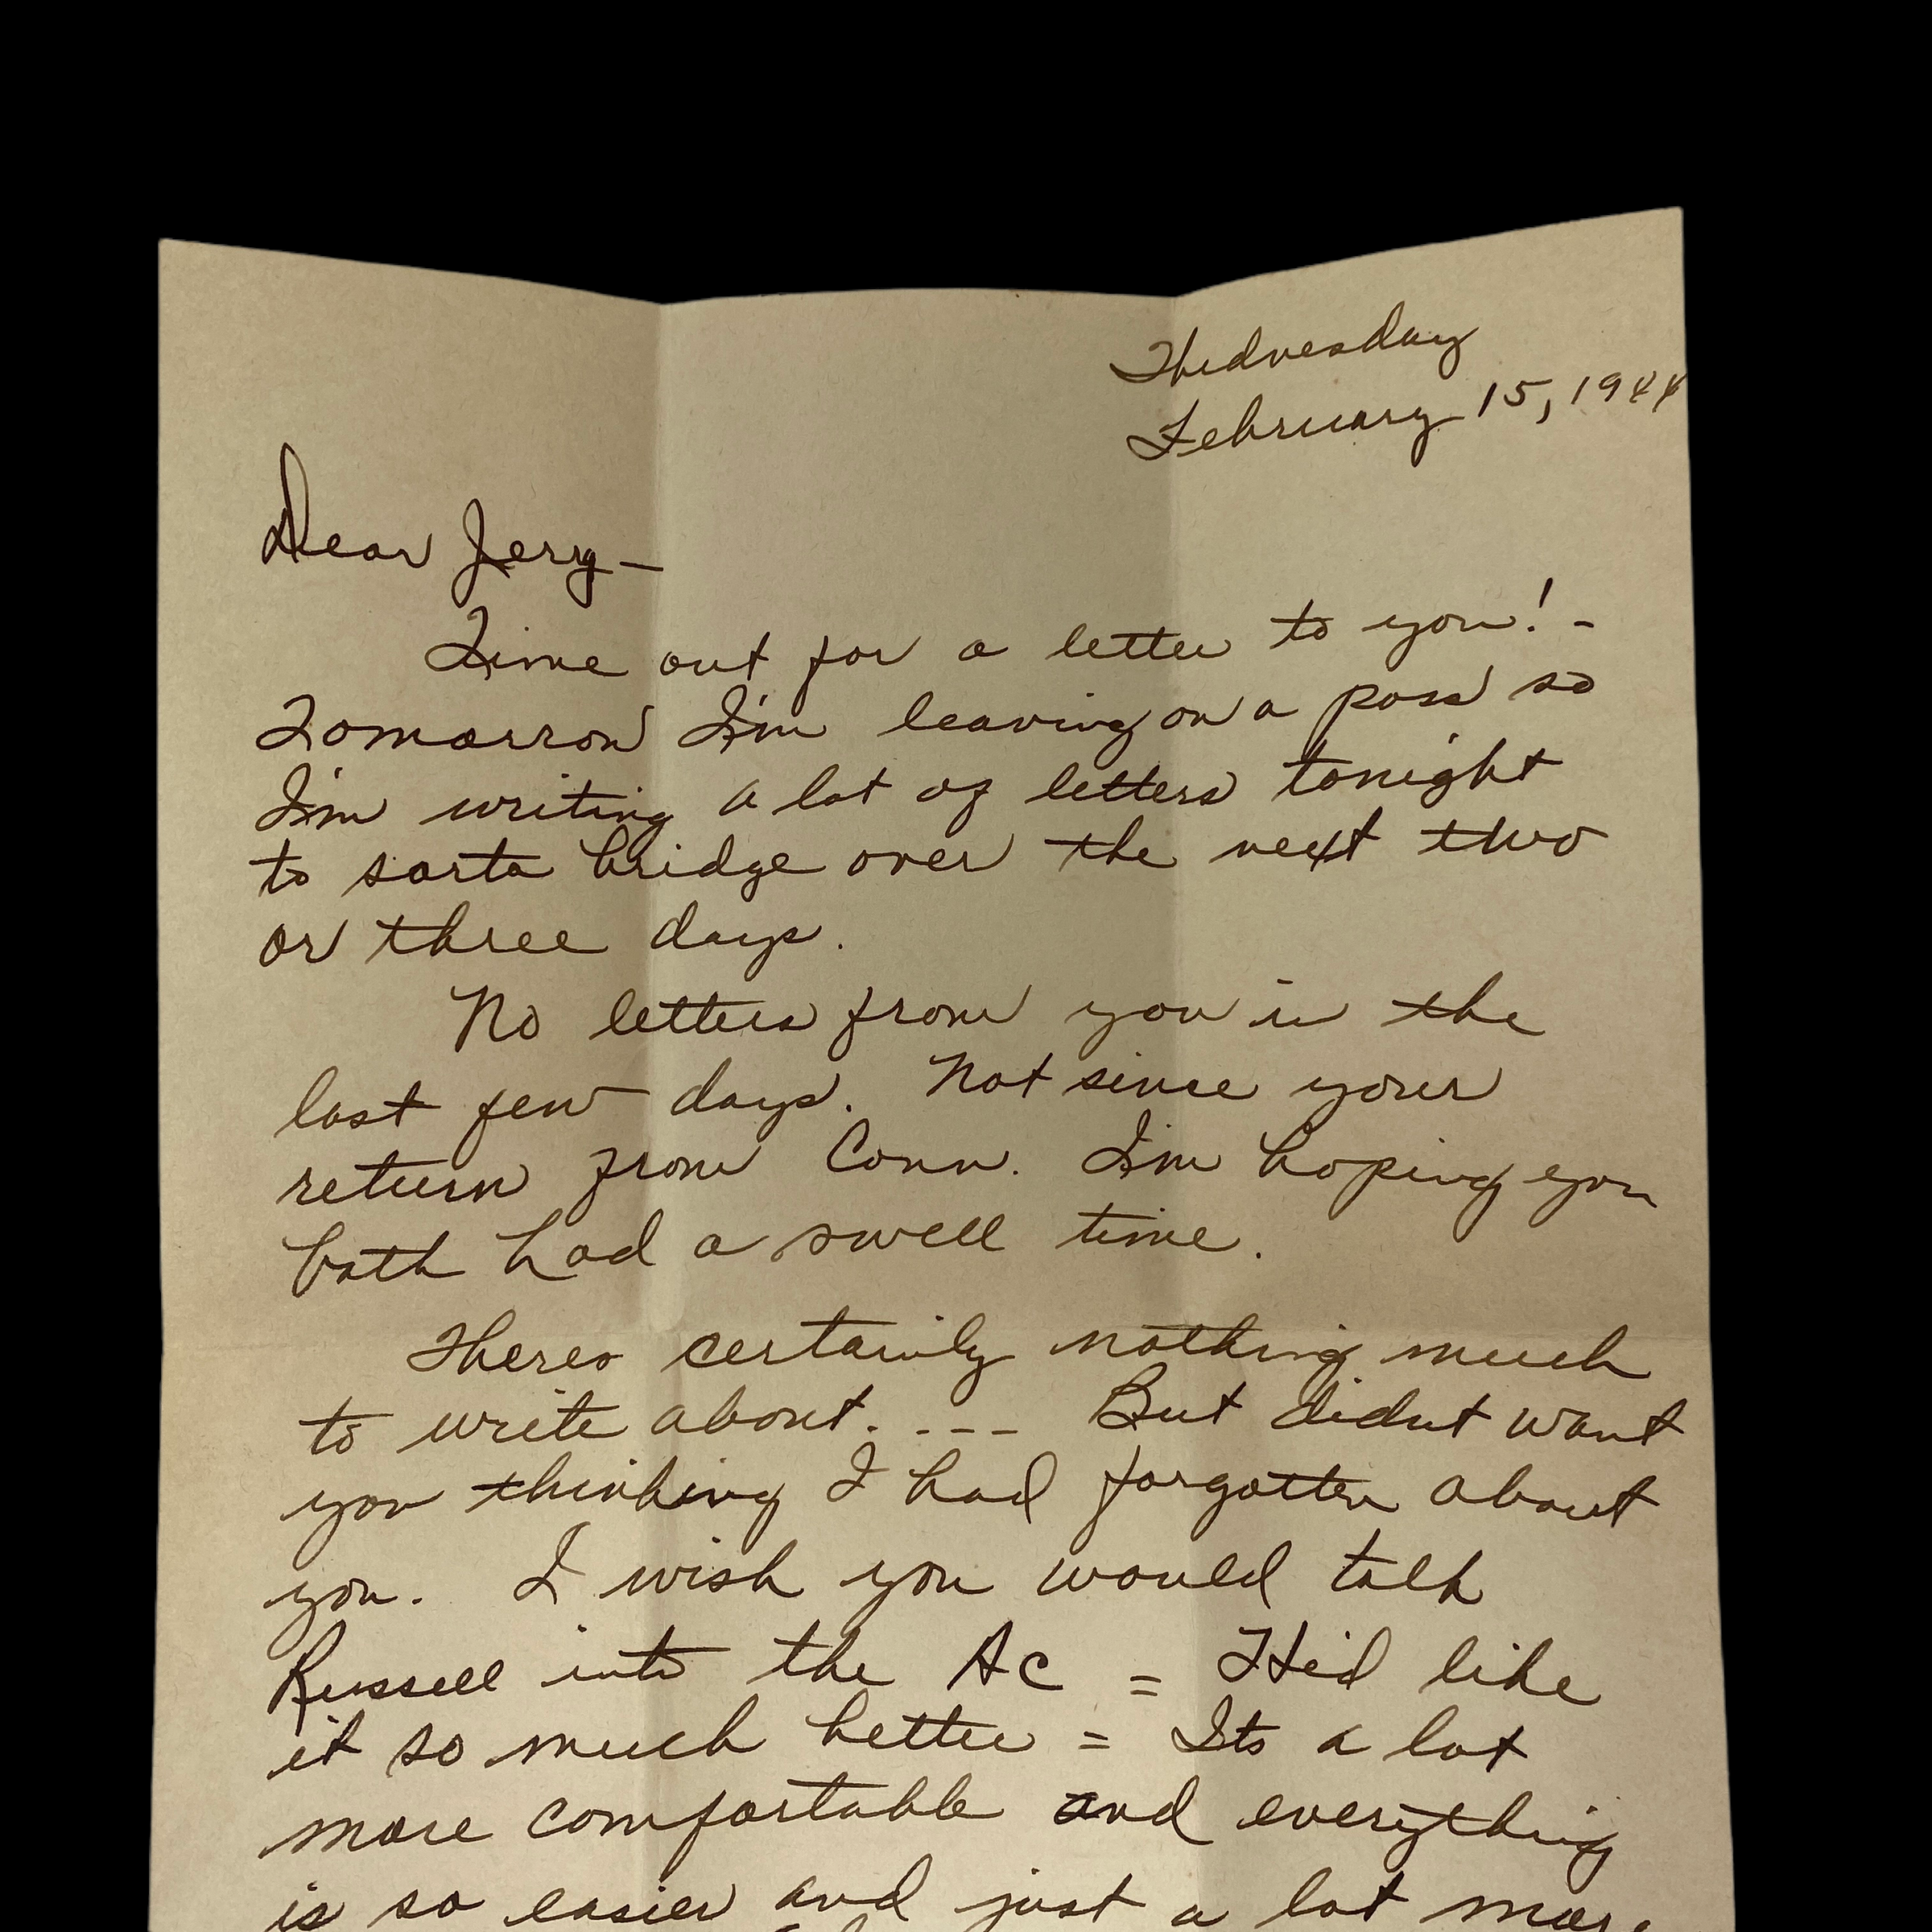 Wednesday
February 15, 1944
Dear Jerry—
Time out for a letter to you! -
Tomorrow I'm leaving on a pass so
I'm writing a lot of letters tonight
to sorta bridge over the next two
or three days.
No letters from you in the
last few days. Not since your
return from Conn. I'm hoping you
both had a swell time.
Theres certainly nothing much
to write about. --- But didnt want
you thinking I had forgotten about
you. I wish you would talk
Russell into the AC = He'd like
it so much better = Its a lot
more comfortable and everything
is so easier and just a lot more